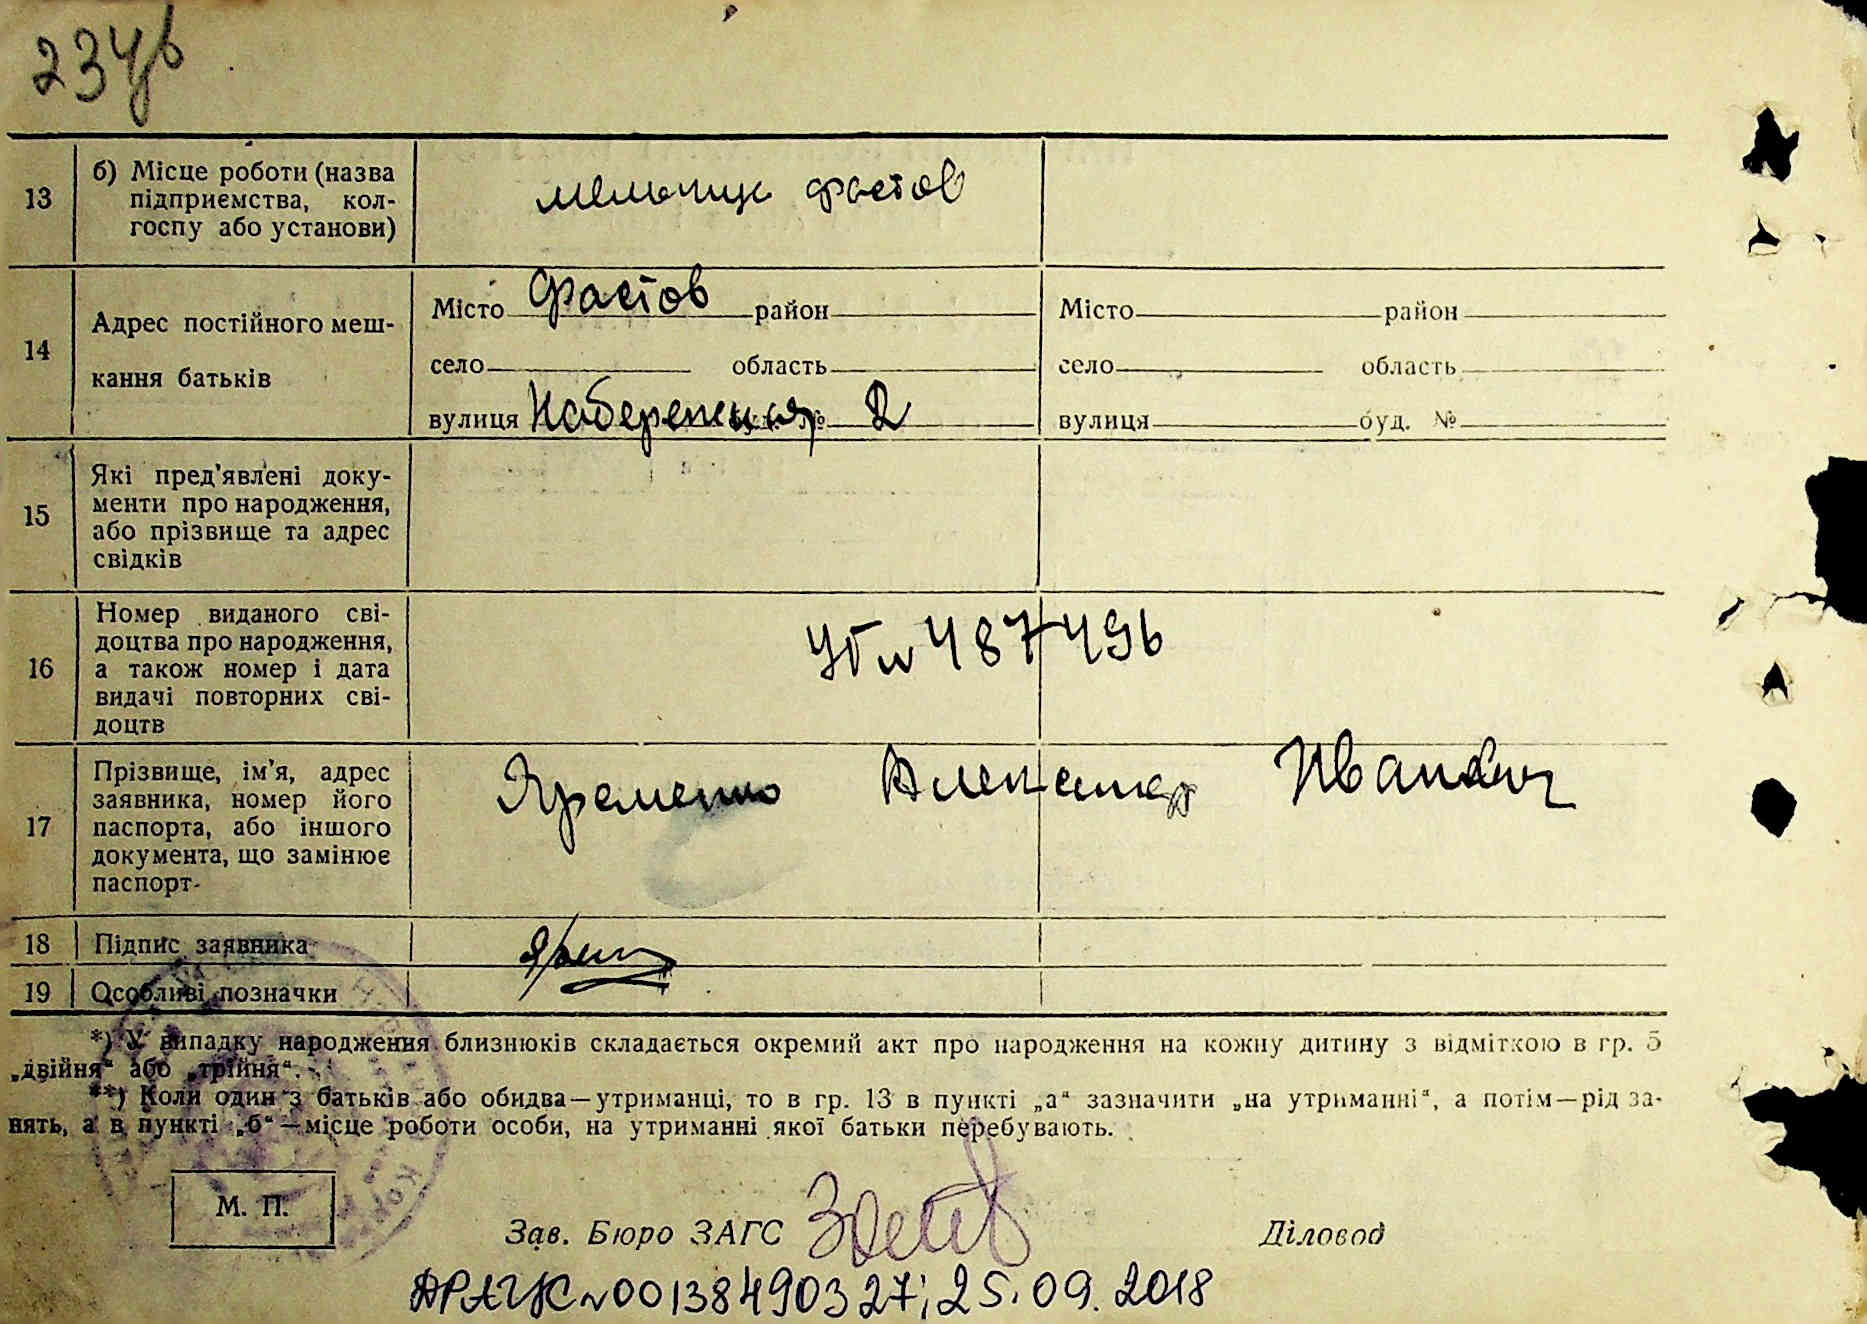 234
13
б) Місце роботи (назва
підприємства, кол-
госпу або установи)
мельниця фастов
14
Адрес постійного меш-
кання батьків
Місто Фастов район
село область
вулиця Набережная буд. № 2
Місто район
село область
вулиця буд. №
15
Які пред'явлені доку-
менти про народження,
або прізвище та адрес
свідків
16
Номер виданого сві-
доцтва про народження,
а також номер і дата
видачі повторних сві-
доцтв
№ 487496
17
Прізвище, ім'я, адрес
заявника, номер його
паспорта, або іншого
документа, що замінює
паспорт-
Яременко Александр Иванович
18
Підпис заявника
19
Особливі позначки
*) У випадку народження близнюків складається окремий акт про народження на кожну дитину з відміткою в гр. 5
„двійня“ або „трійня“.
**) Коли один з батьків або обидва—утриманці, то в гр. 13 в пункті „а“ зазначити „на утриманні“, а потім—рід за-
нять, а в пункті „б“—місце роботи особи, на утриманні якої батьки перебувають.
М. П.
Зав. Бюро ЗАГС
Діловод
ДРАЦС №00138490327; 25.09.2018